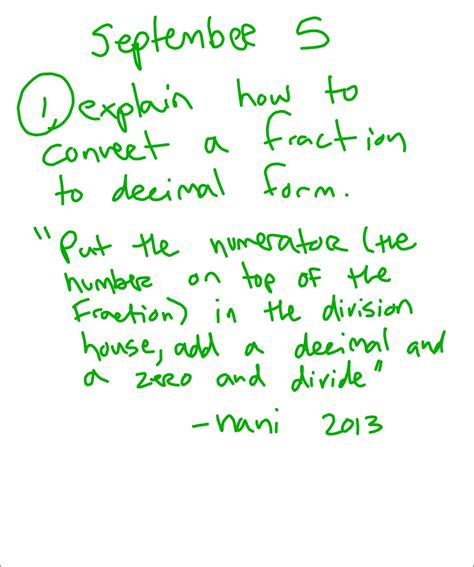 September 5
1. explain how to
convert a fraction
to decimal form.
"Put the numerator (the
number on top of the
Fraction) in the division
house, add a decimal and
a zero and divide"
- nani 2013